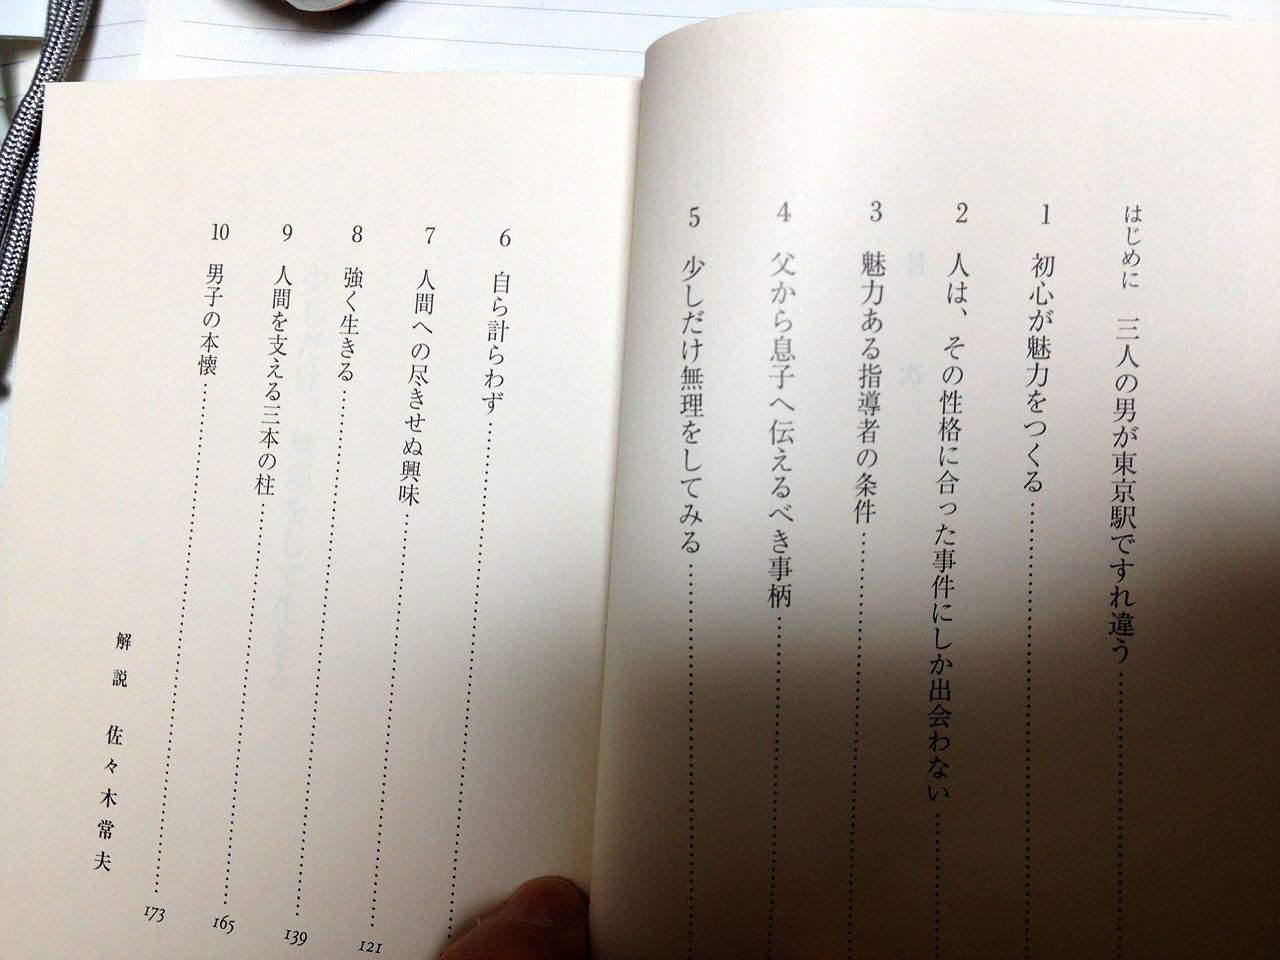 はじめに 三人の男が東京駅ですれ違う……………
1 初心が魅力をつくる……………
2 人は、その性格に合った事件にしか出会わない……………
3 魅力ある指導者の条件……………
4 父から息子へ伝えるべき事柄……………
5 少しだけ無理をしてみる……………
6 自ら計らわず……………
7 人間への尽きせぬ興味……………121
8 強く生きる……………139
9 人間を支える三本の柱……………165
10 男子の本懐……………173
解説 佐々木常夫